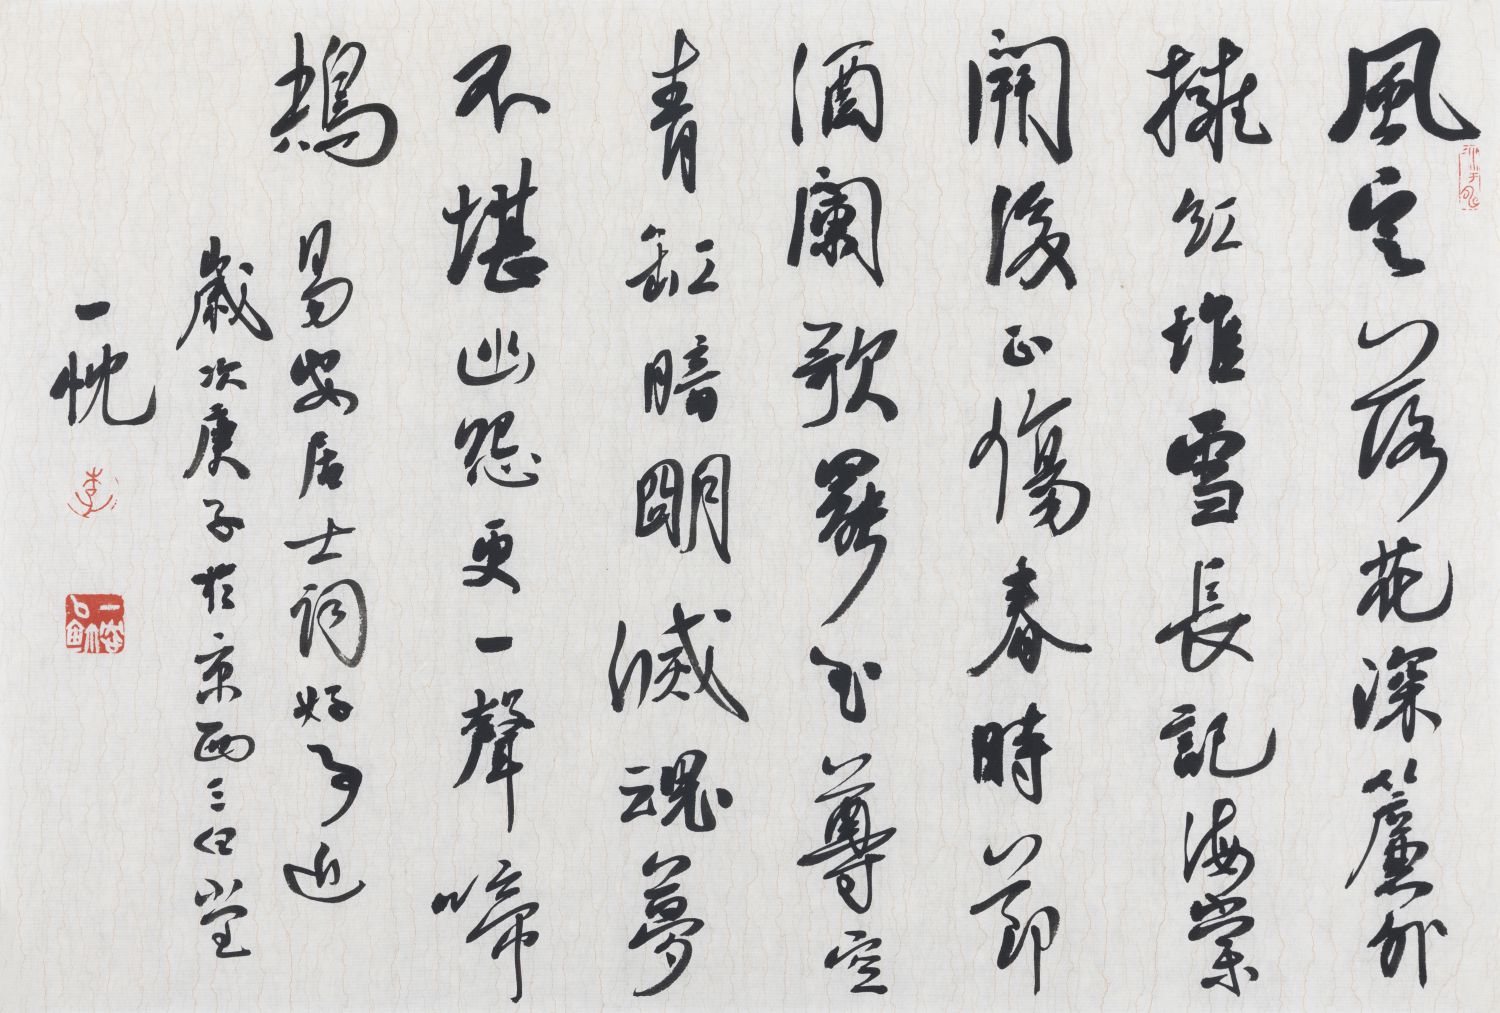 風定落花深簾外
擁紅堆雪長記海棠
開後正傷春時節
酒闌歌罷玉尊空
青缸暗明滅魂夢
不堪幽怨更一聲啼
鴂 易安居士詞好事近
歲次庚子於京西三堂
一忱
李